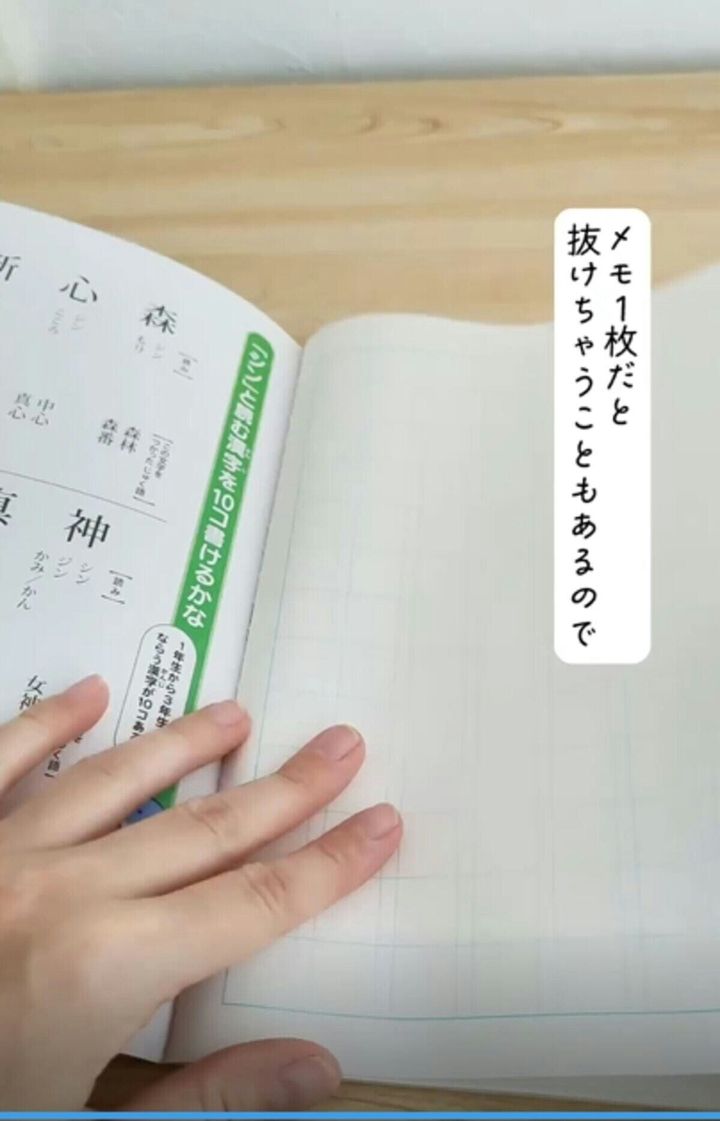 メモ1枚だと
抜けちゃうこともあるので
「シン」と読む漢字を10コ書けるかな
森
[読み]
シン
もり
森林
森番
心
シン
こころ
中心
真心
神
[読み]
シン
ジン
かみ/かん
女神
1年生から3年生
ならう漢字が10コあ